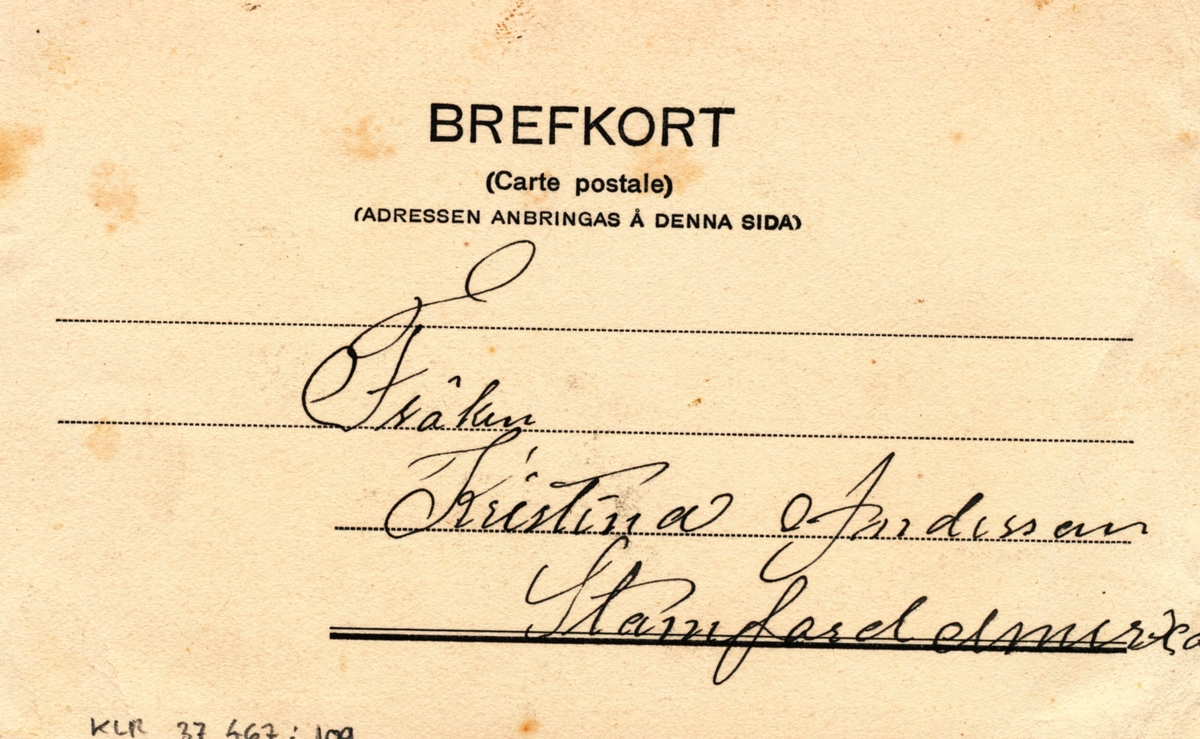 BREFKORT
(Carte postale)
(ADRESSEN ANBRINGAS Å DENNA SIDA)
Fröken
Kristina Andersson
Stamford Amerika
KLR 37 467:109